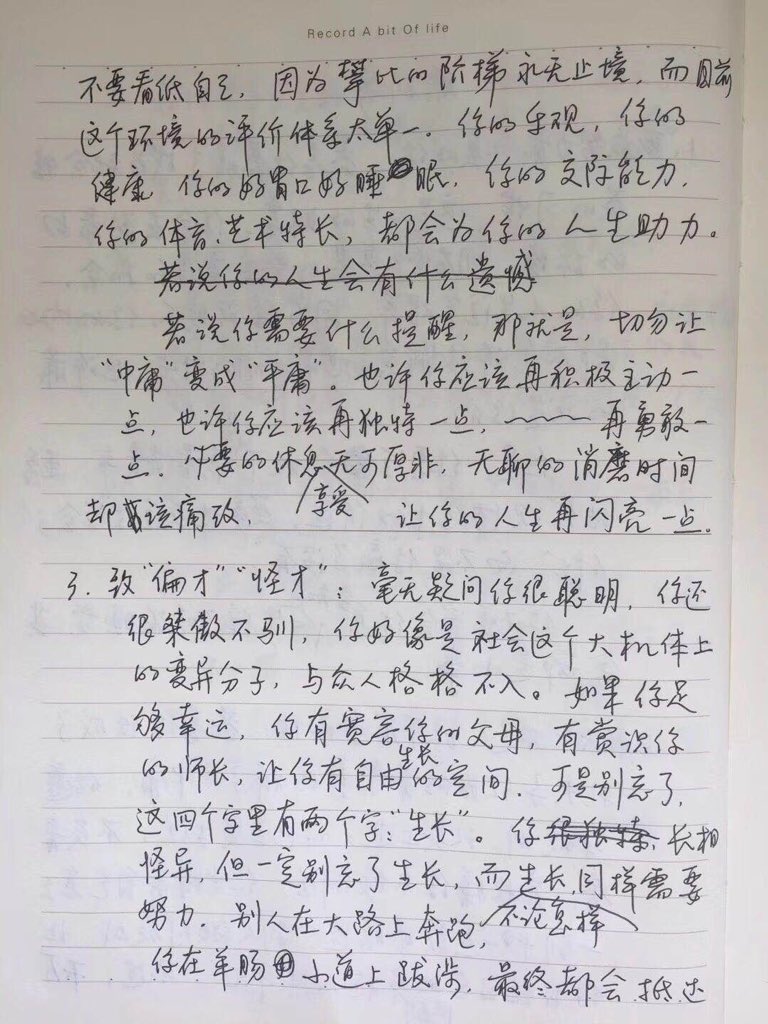 Record A bit Of life
不要看低自己，因为攀比的阶梯永无止境，而目前
这个环境的评价体系太单一。你的乐观，你的
健康 你的好胃口好睡眠，你的交际能力，
你的体育、艺术特长，都会为你的人生助力。
若说你的人生会有什么遗憾
若说你需要什么提醒，那就是，切勿让
“中庸”变成“平庸”。也许你应该再积极主动一
点，也许你应该再独特一点，～～～再勇敢一
点．必要的休息无可厚非，无聊的消磨时间
享受
却该痛致．让你的人生再闪亮一点．
3. 致“偏才”“怪才”：毫无疑问你很聪明，你还
很桀傲不驯，你好像是社会这个大机体上
的变异分子，与众人格格不入。如果你足
够幸运，你有宽容你的父母，有赏识你
生长
的师长，让你有自由的空间．可是别忘了，
这四个字里有两个字：“生长”。你很独特，长相
怪异，但一定别忘了生长，而生长同样需要
努力．别人在大路上奔跑，不论怎样
你在羊肠小道上跋涉，最终都会抵达